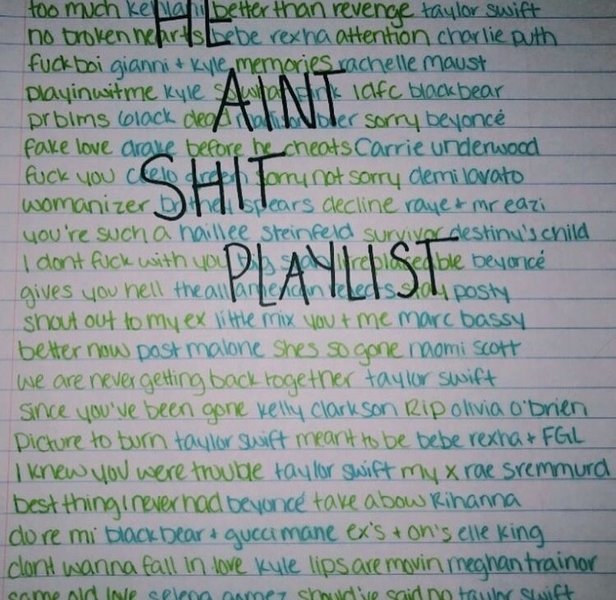 too much kehlani better than revenge taylor swift
no broken hearts bebe rexha attention charlie puth
fuckboi gianni + kyle memories rachelle maust
playinwitme kyle so what pink idfc blackbear
prblms 6lack dead madison beer sorry beyoncé
fake love drake before he cheats Carrie underwood
fuck you ceelo green sorry not sorry demi lavato
womanizer britney spears decline raye + mr eazi
you're such a hailee steinfeld survivor destiny's child
I dont fuck with you big sean irreplaceable beyoncé
gives you hell the all american rejects stay posty
shout out to my ex little mix you + me marc bassy
better now post malone shes so gone naomi scott
we are never getting back together taylor swift
since you've been gone kelly clarkson Rip olivia o'brien
picture to burn taylor swift meant to be bebe rexha + FGL
I knew you were trouble taylor swift my x rae sremmurd
best thing I never had beyoncé take a bow Rihanna
do re mi blackbear + gucci mane ex's + oh's elle king
dont wanna fall in love kyle lips are movin meghan trainor
same old love selena gomez should've said no taylor swift
HE
AINT
SHIT
PLAYLIST